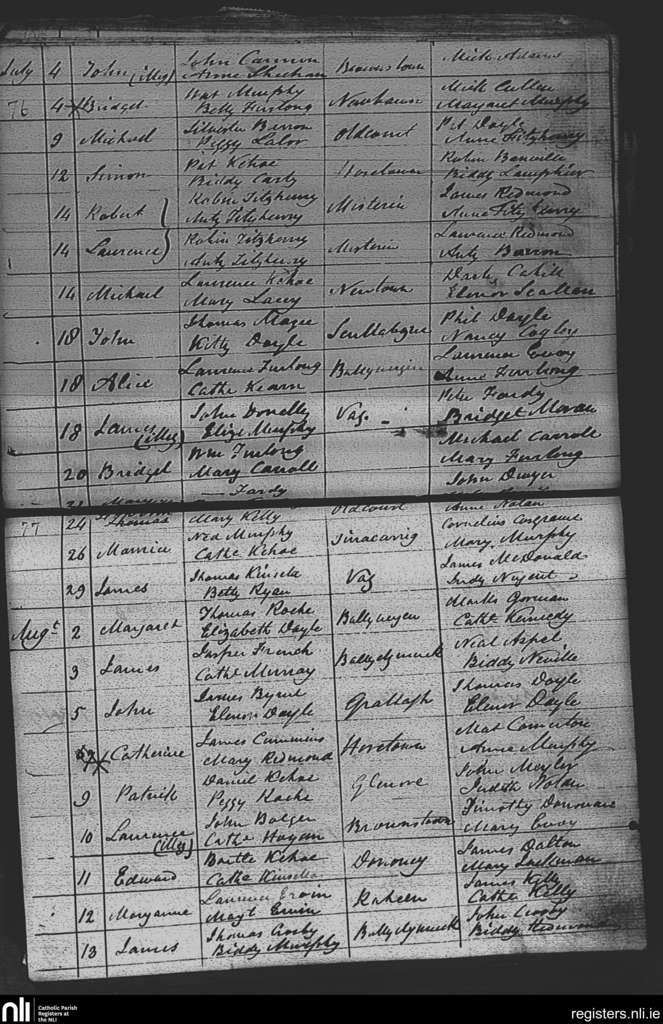 July 4 John (illeg) John Cannon Brownstown Mick Adams
Anne Sheehan
76 4 Bridget Wat Murphy Newhouse Mick Cullen
Betty Furlong Margaret Murphy
9 Michael Silvester Barron Oldcourt Pat Doyle
Peggy Lalor Anne Fitzhenry
12 Simon Pat Kehoe Horetown Robin Banville
Biddy Carty Biddy Lamphier
14 Robert Robin Fitzhenry Misterin James Redmond
Anty Fitzhenry Anne Fitzhenry
14 Laurence Robin Fitzhenry Misterin Laurence Redmond
Anty Fitzhenry Anty Barron
14 Michael Laurence Kehoe Newtown Darby Cahill
Mary Lacey Elenor Scallan
18 John Thomas Magee Scullabogue Phil Doyle
Kitty Doyle Nancy Cogley
18 Alice Laurence Furlong Laurence Evoy
Cathe Kearn Anne Furlong
18 James (illeg) John Donelly Vag. Peter Fardy
Eliza Murphy Bridget Moran
20 Bridget Wm Furlong Michael Carroll
Mary Carroll Mary Furlong
Fardy John Dwyer
77 24 Thomas Mary Kelly Oldcourt Anne Nolan
26 Ned Murphy Cornelius Cosgrave
Cathe Kehoe Mary Murphy
29 James Thomas Kinsela Vag James McDonald
Betty Ryan Judy Nugent
Augt 2 Margaret Thomas Roche Marks Gorman
Elizabeth Doyle Cathe Kennedy
3 James Jasper French Ballyclymuck Neal Aspel
Cathe Murray Biddy Neville
5 John James Byrne Grallagh Thomas Doyle
Elenor Doyle Elenor Doyle
Catherine James Cummins Horetown Mat Comerton
Mary Redmond Anne Murphy
9 Patrick Daniel Kehoe Glenore John Meyler
Peggy Roche Judith Nolan
10 Laurence (illeg) John Bolger Brownstown Timothy Donovane
Cathe Hogan Mary Evoy
11 Edward Bartle Kehoe Dononey James Dalton
Cathe Kinsella Mary
12 Maryanne Laurence Erwin Raheen James Kelly
Magt Erwin Cathe Kelly
13 James Thomas Crosby Ballyclymuck John Crosby
Biddy Murphy Biddy Redmond
nli Catholic Parish
Registers at
the NLI
registers.nli.ie